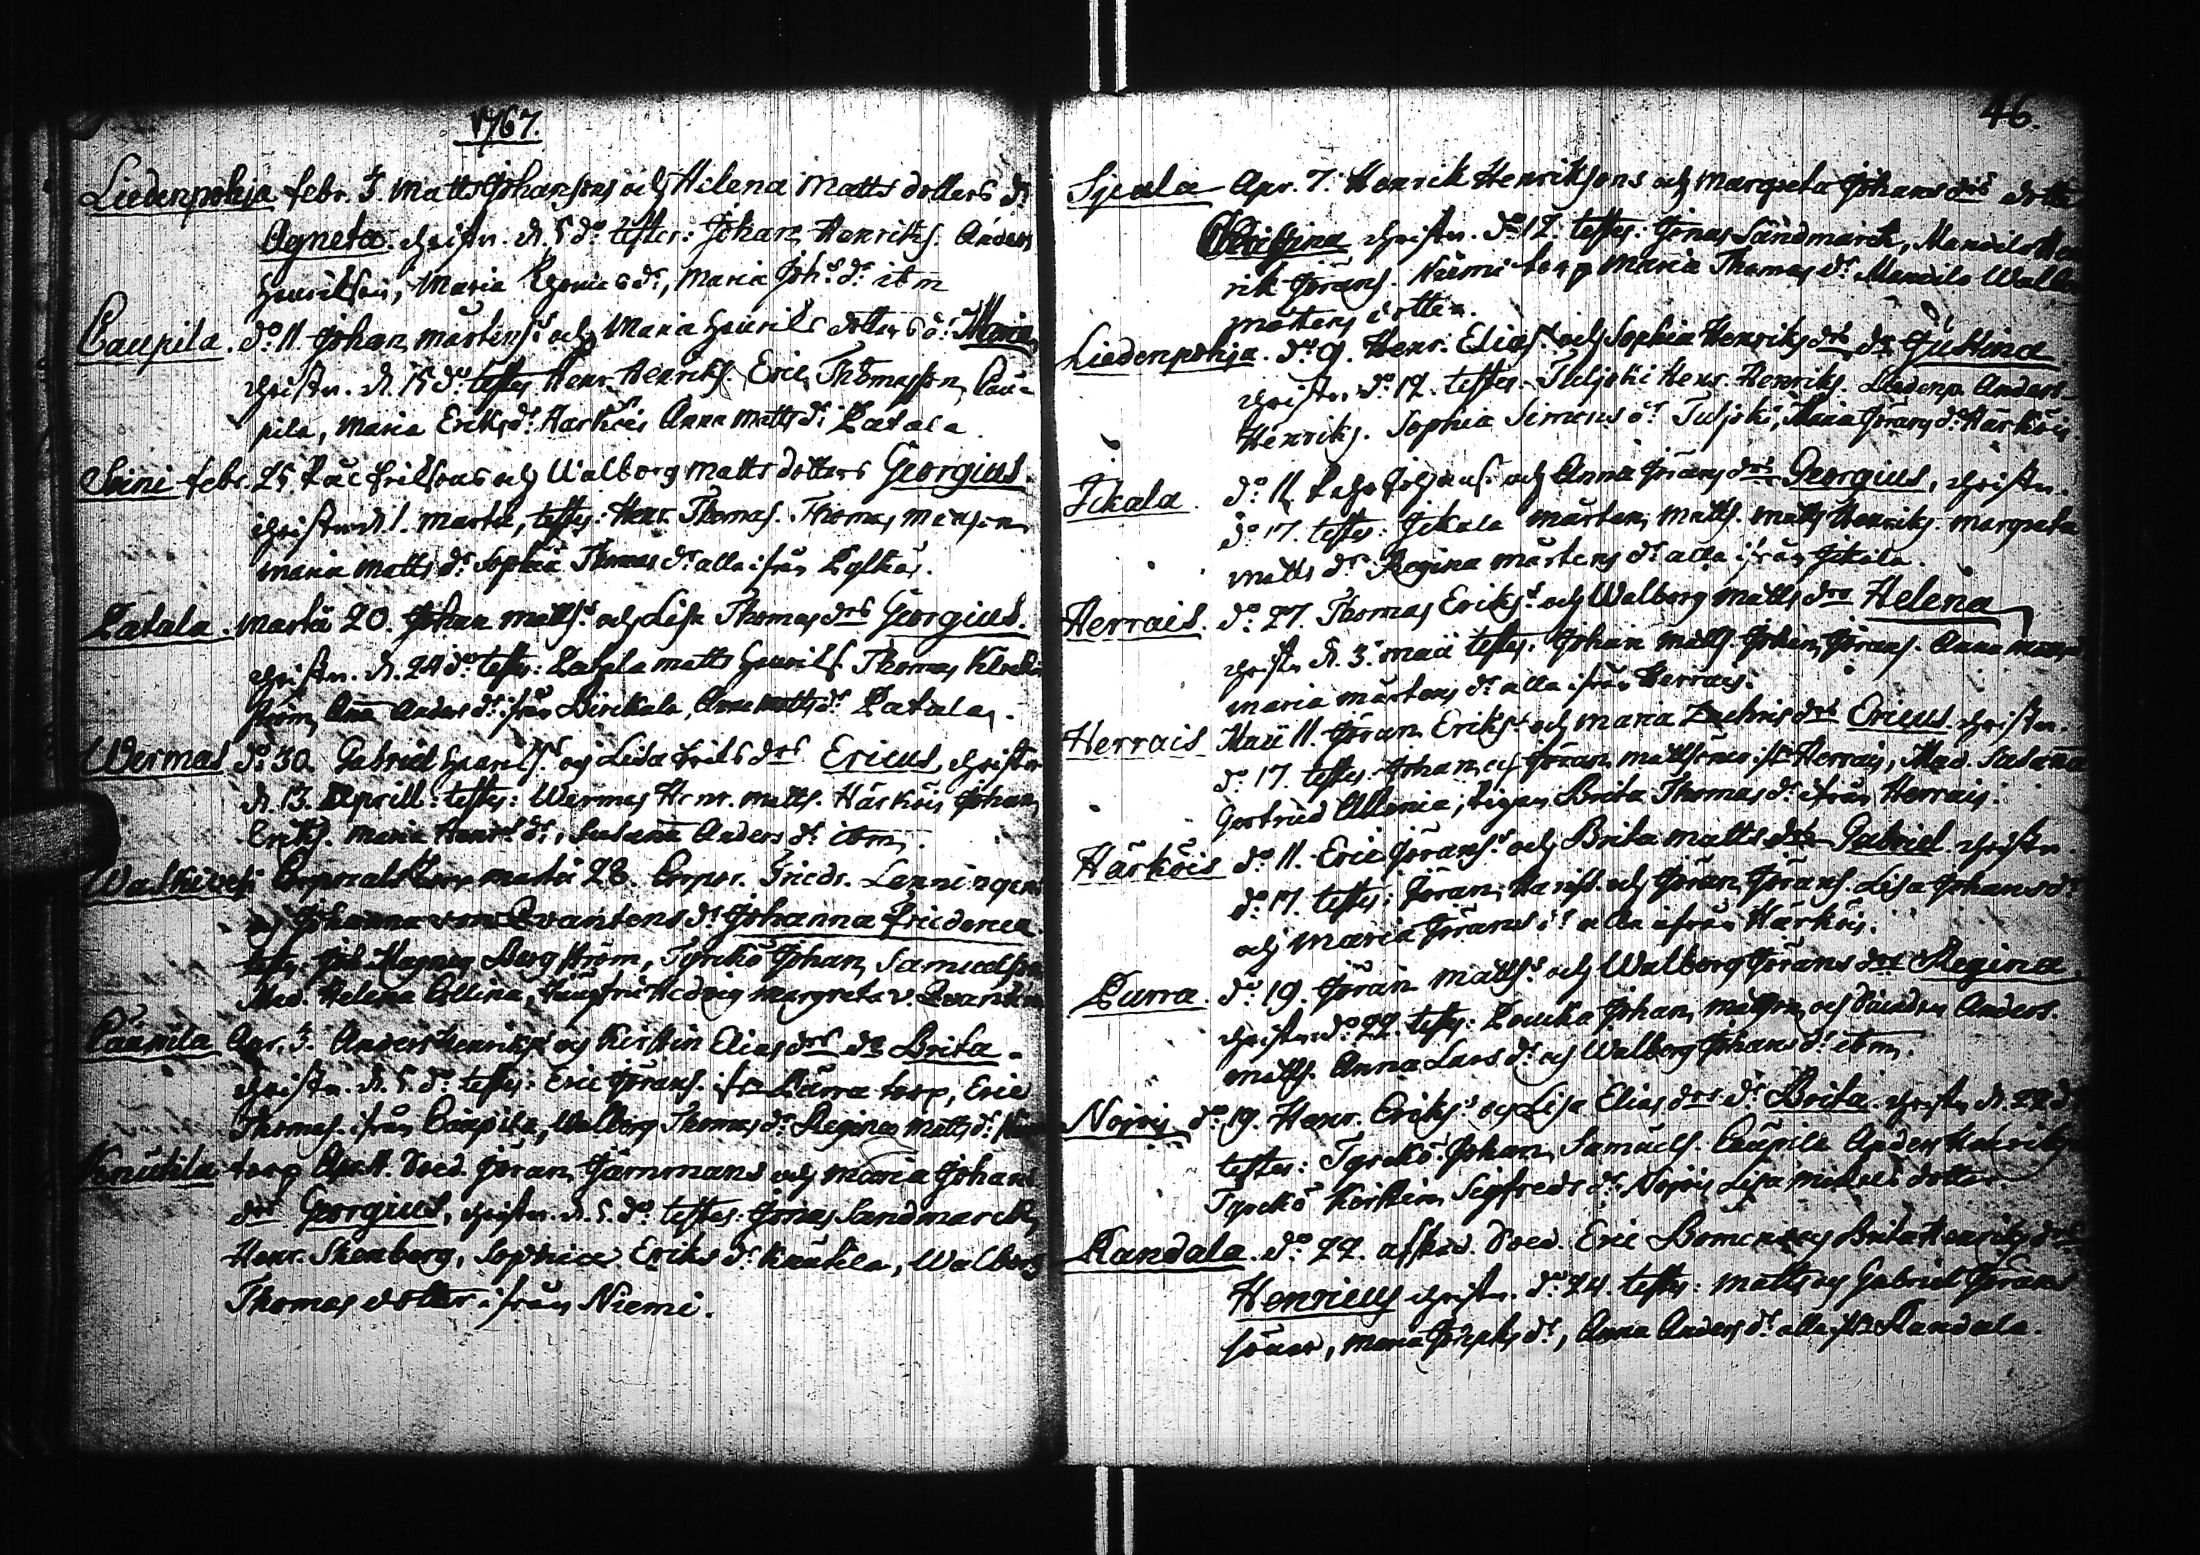 1767.
Liedenpohja febr. 3. Matts Johansons och Helena Matts dotters dr
Agneta. christn. d. 5 do testes: Johan Henriks. Anders
Henrikson, Maria dr, Maria Johs dr ibm
Caupila. do 11. Johan Mårtenss och Maria Henriks dotters dr Maria
christn. d. 15 do testes Henr. Henriks. Eric Thomasson Cau-
pila, Maria Eriksdr Härköis Anna Matts dr Latala
Soini febr. 25 och Walborg Matts dotters Georgius.
christn d 1. Martii, testes: Henr. Thomas. Thomas
Maria Matts dr Sophia Thomas dr alla ifrån
Latala. Martii 20. Johan Mattss och Lisa Thomas drs Georgius.
christn. d. 24 do testes: Latala Matts Henriks. Thomas
Anders dr ifrån Birckala, Anna Matts dr Latala.
Wermas do 30 Gabriel Henrikss och Lisa Eriks drs Ericus, christn
d. 13. Aprill: testes: Wermas Henr. Matts. Härköis Johan
Eriks. Maria Henrs dr, Susanna Anders dr ibm.
Walkivesi Corporals Martii 28. Corpor. Friedr.
och Johanna von Qvantens dr Johanna Fridericа
testes: Magnus Bergström, Tyrckö Johan Samuelson
Mad. Helena Collina, Jungfru Hedvig Margreta v. Qvanten
Caupila Apr. 3. Anders Henrikss och Kirstin Elias drs dr Brita.
christn. d. 5. do testes: Eric Jörans. ifr Purra torp, Eric
Thomas. ifrån Caupila, Walborg Thomas dr Regina Matts dr
Knutila torp Apr. Sold. Jöran Jämmans och Maria Johans
drs Georgius, christn. d. 5. do testes: Jonas Sandmarck,
Henr. Stenberg, Sophia Eriks dr Knutila, Walborg
Thomas dotter ifrån Niemi.
46.
Apr. 7. Henrik Henriksons och Margreta Johans drs dotter
Christina christn. do 12. testes: Jonas Sandmarck, Mansilo Hen
rik Jörans. Niemi torp Maria Thomas dr Mansilo Walborg
Mårtens dotter.
Liedenpohja. do 9. Henr. Eliass och Sophia Henriks drs dr Justina
christn. do 12. testes. Tuljoki Henr. Henriks. Liedenp. Anders
Henriks. Sophia Simons dr Tuljoki, Maria Jörans dr Härköis.
Jckala do 11 Johans. och Anna Jörans drs Georgius, christn.
do 17. testes: Jckala Mårten Matts. Matts Henriks. Margreta
Matts dr Regina Mårtens dr alla ifrån Jckala.
Herrais. do 27. Thomas Erikss och Walborg Matts drs Helena
christn d. 3. Maii testes: Johan Matts. Johan Jörans. Anna
Maria Mårtens dr alla ifrån Herrais.
Herrais Maii 11. Jöran Erikss och Maria Zachris drs Ericus christn.
do 17. testes. Johan och Jöran Mattsöner ifr Herrais, Mad. Susanna
Gertrud Allenia, Brita Thomas dr ifrån Herrais.
Härköis do 11. Eric Jöranss och Brita Matts drs Gabriel. christn.
do 17. testes: Jöran och Jöran Jörans. Lisa Johans dr
och Maria Jörans dr alla ifrån Härköis.
Purra. do 19. Jöran Mattss och Walborg Jörans drs Regina.
christn do 22. testes: Johan Matson och Anders
Matts. Anna Lars dr och Walborg Johans dr ibm.
do 19. Henr. Erikss och Lisa Elias drs dr Brita christn d. 22 do
testes: Tyrckö Johan Samuels. Caupila Anders Henriks
Tyrckö Kirstin Sigfreds dr Lisa dotter
Kandala. do 22. afsked. Sold. Eric och Brita Henriks drs
Henricus christn. do 24. testes: Matts och Gabriel Jörans
söner, Maria dr, Anna Anders dr alla ifr Kandala.